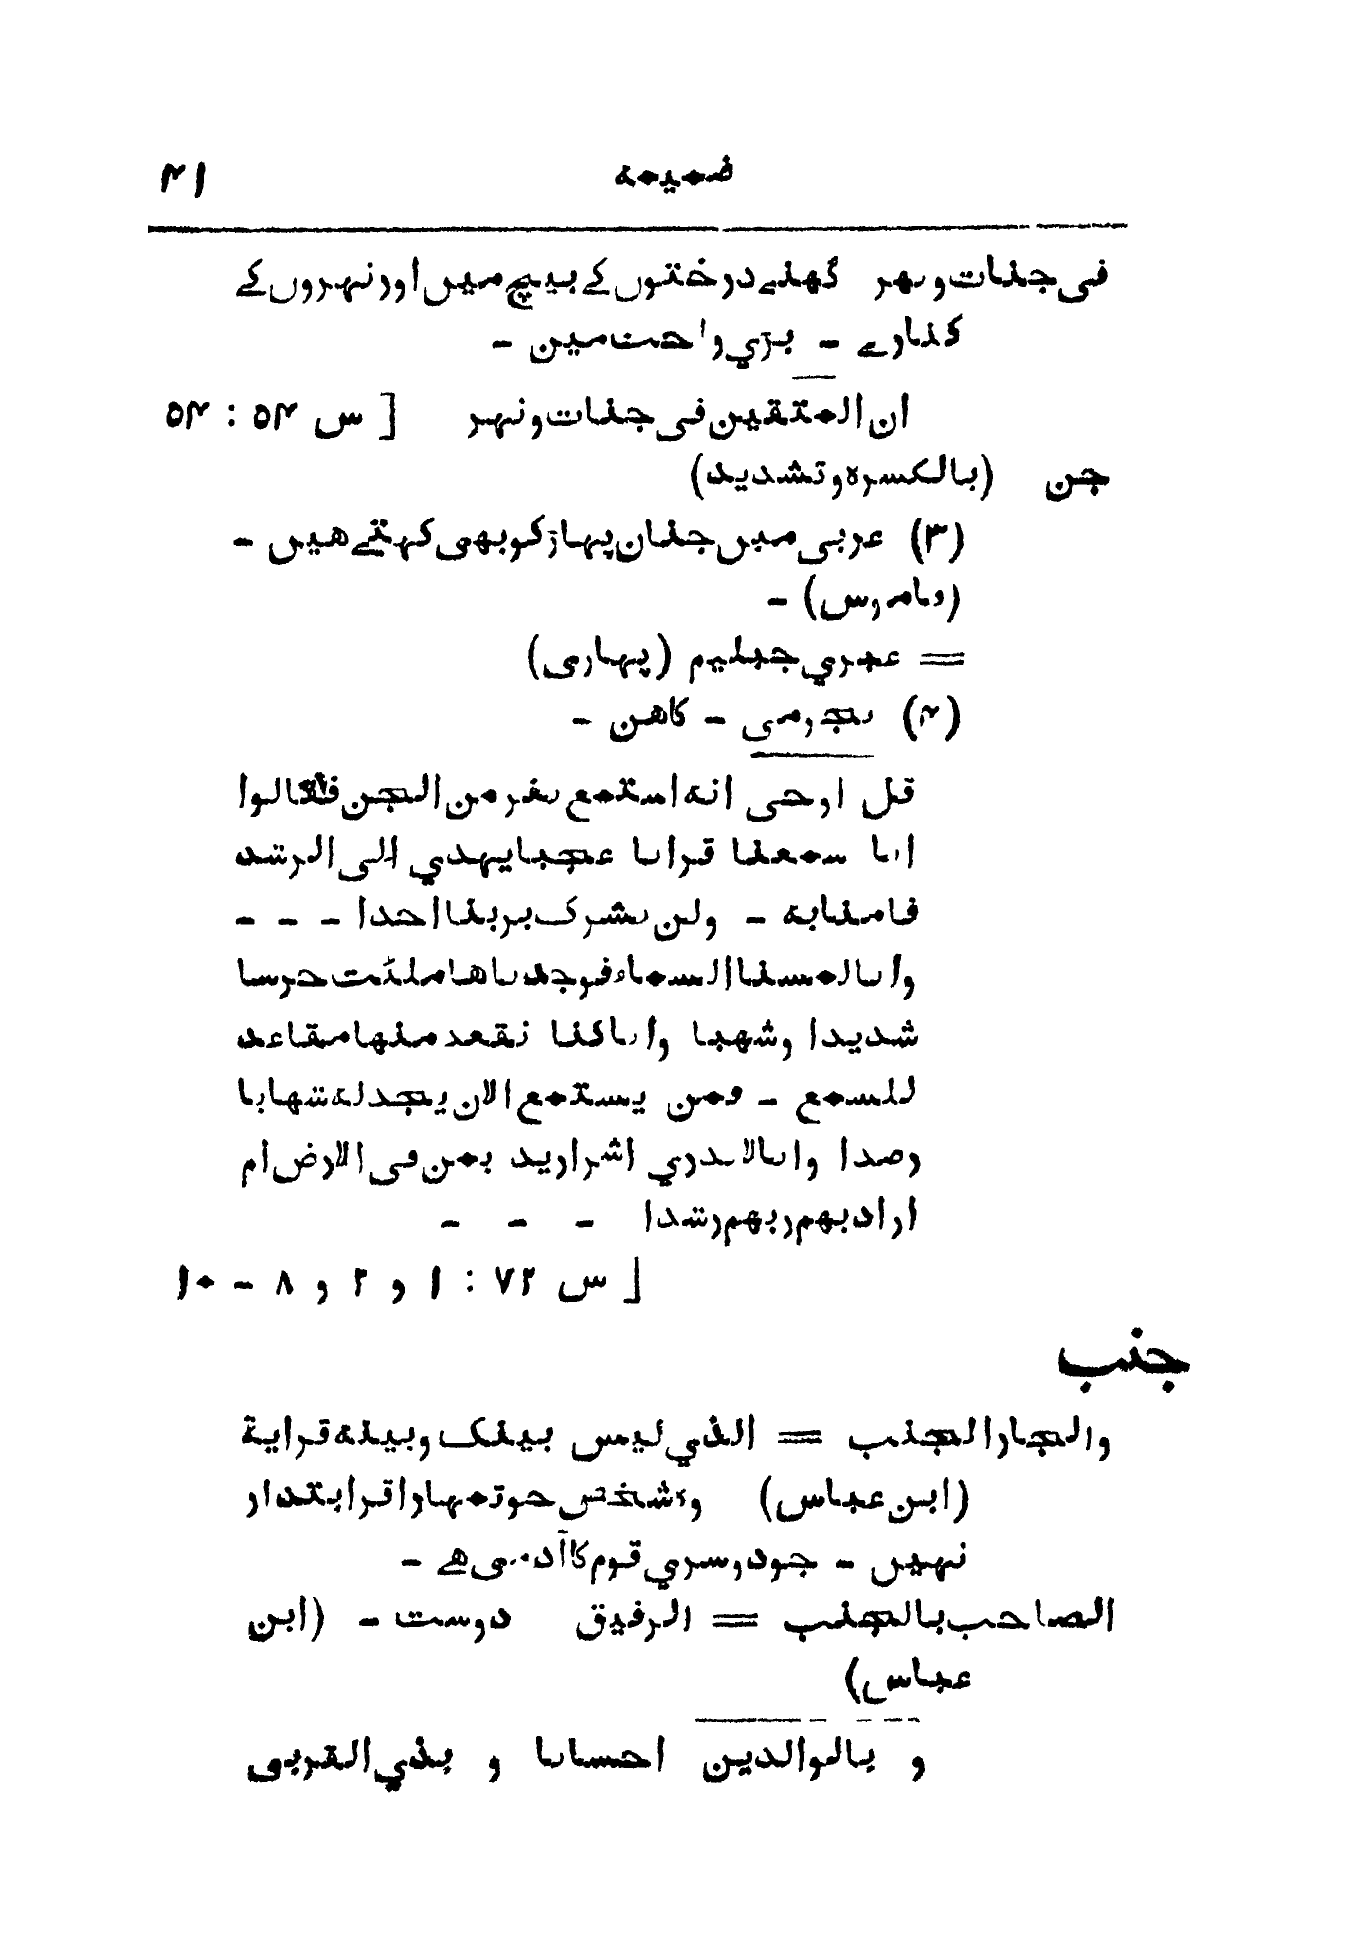 ضمیمہ ۴۱
فی جنات و نهر گھنے درختوں کے بیچ میں اور نہروں کے
کنارے - بڑي راحت مین -
ان المتقین فی جنات و نهر [ س ۵۴ : ۵۴
جن (بالکسرہ و تشدید)
(۳) عربی میں جنان پہاڑ کو بھی کہتے هیں -
(قاموس) -
= عبري جبلیم (پہاری)
(۴) نجومی - کاهن -
قل اوحی انه استمع نفر من الجن فقالوا
انا سمعنا قرانا عجبا یهدي الی الرشد
فامنا به - ولن نشرک بربنا احدا - - -
وانا لمسنا السماء فوجدناها ملئت حرسا
شدیدا وشهبا وانا کنا نقعد منها مقاعد
للسمع - فمن یستمع الان یجد له شهابا
رصدا وانا لا ندري اشر ارید بمن فی الارض ام
اراد بهم ربهم رشدا - - -
[ س ۷۲ : ۱ و ۲ و ۸ - ۱۰
جنب
والجار الجنب = الذي لیس بینک وبینه قرایة
(ابن عباس) وہ شخص جو تمہارا قرابتدار
نہیں - جو دوسري قوم کا آدمی هے -
الصاحب بالجنب = الرفیق دوست - (ابن
عباس)
و بالوالدین احسانا و بذي القربی